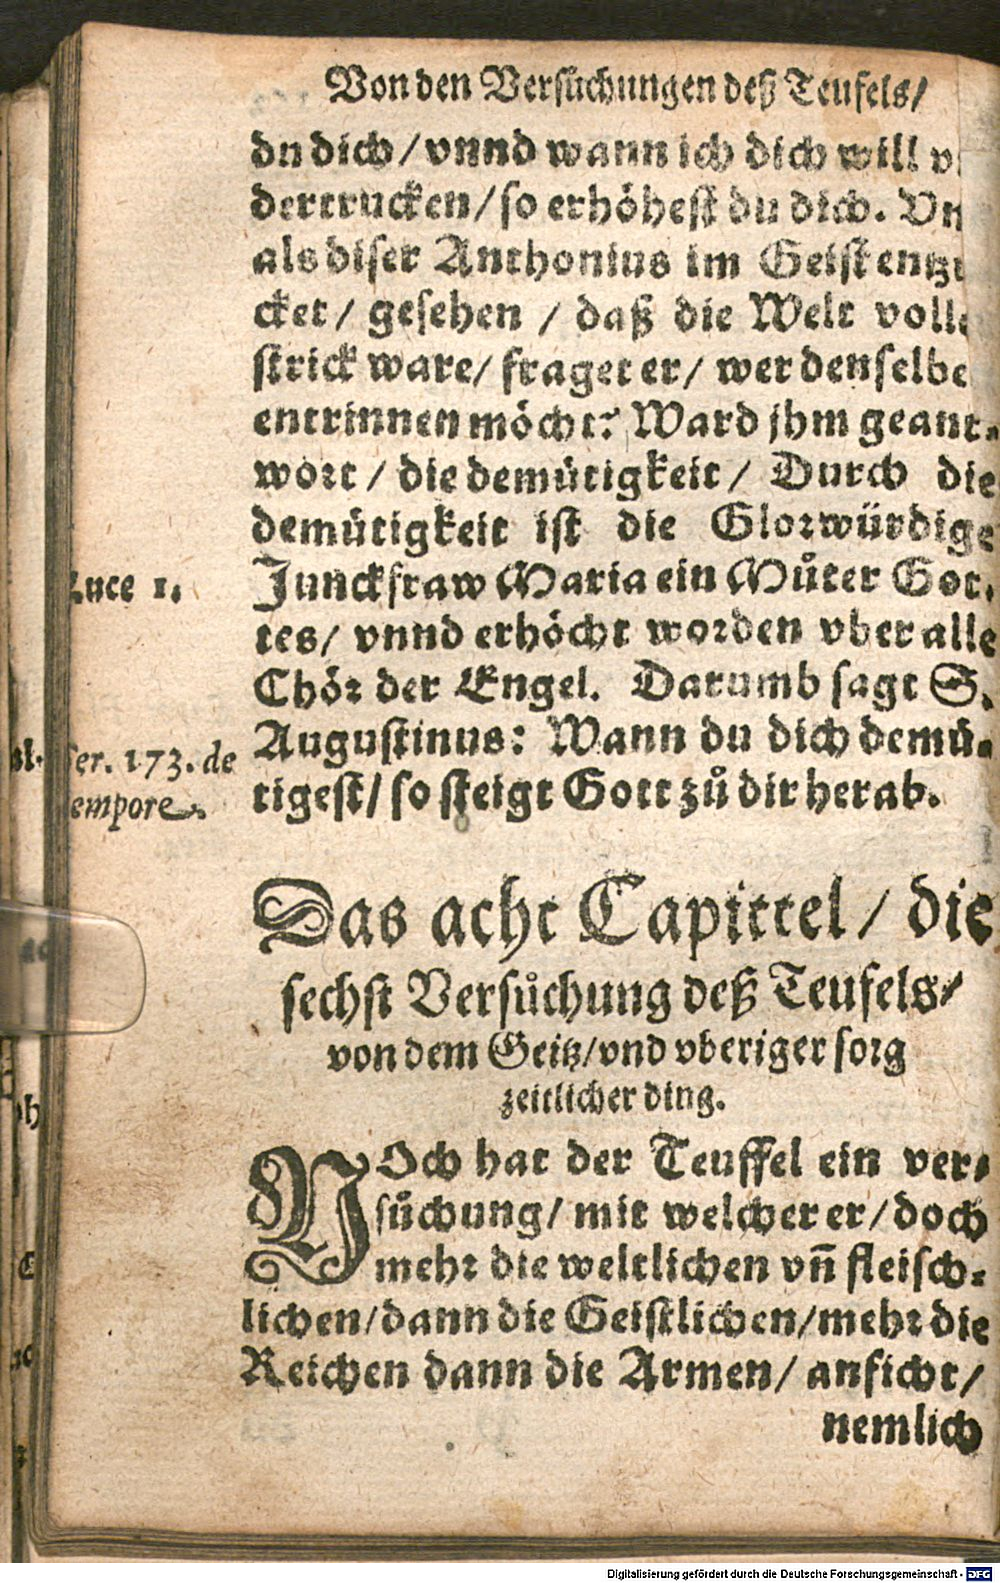 Von den Versůchungen deß Teufels/
du dich / vnnd wann ich dich will
dertrucken / so erhöhest du dich. Vn
als diser Anthonius im Geist entzu
cket / gesehen / daß die Welt volle
strick ware / fraget er / wer denselbe
entrinnen möcht? Ward jhm geant-
wort / die demütigkeit / Durch die
demütigkeit ist die Glorwürdige
Luce 1. Junckfraw Maria ein Můter Got-
tes / vnnd erhöcht worden vber alle
Chör der Engel. Darumb sagt S.
Augustinus: Wann du dich demü-
Ser. 173. de
tigest / so steigt Gott zů dir herab.
tempore.
Das acht Capittel / die
sechst Versůchung deß Teufels/
von dem Geitz / vnd vberiger sorg
zeitlicher ding.
NOch hat der Teuffel ein ver-
sůchung / mit welcher er / doch
mehr die weltlichen vñ fleisch-
lichen / dann die Geistlichen / mehr die
Reichen dann die Armen / anficht /
nemlich
Digitalisierung gefördert durch die Deutsche Forschungsgemeinschaft - DFG